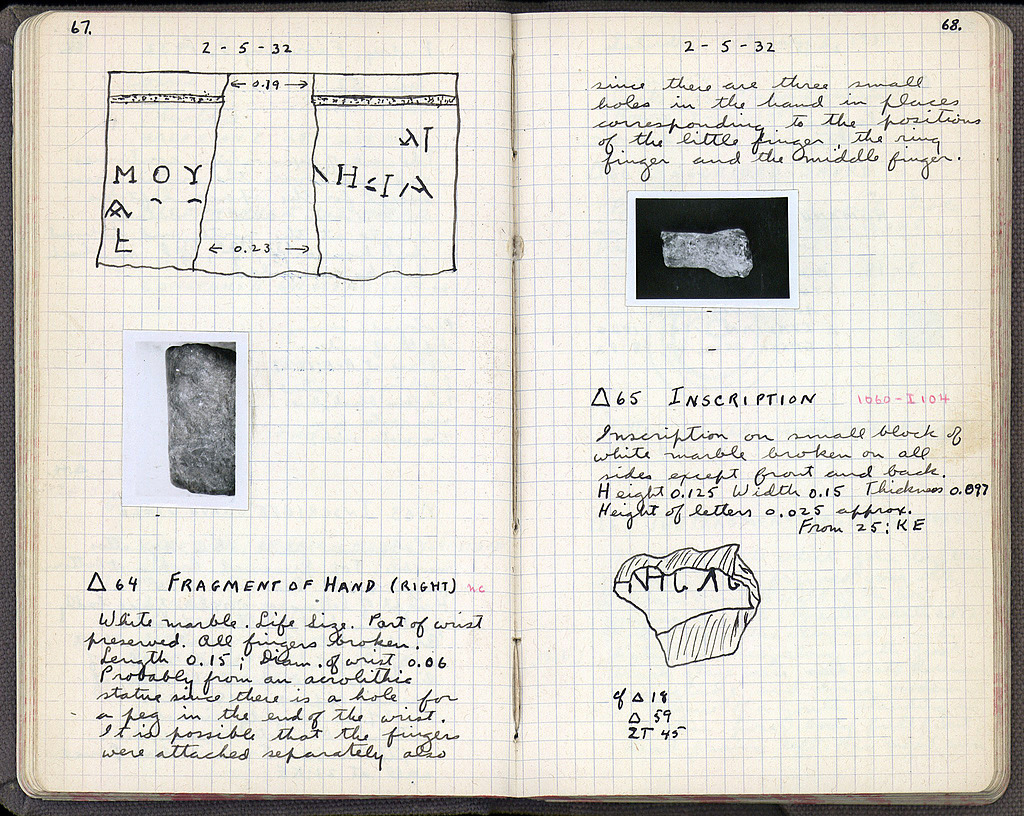 67.
2 - 5 - 32
← 0.19 →
ΜΟΥ
← 0.23 →
Δ 64 FRAGMENT OF HAND (RIGHT) NC
White marble. Life Size. Part of wrist
preserved. All fingers broken.
Length 0.15; Diam. of wrist 0.06
Probably from an acrolithic
statue since there is a hole for
a peg in the end of the wrist.
It is possible that the fingers
were attached separately also
68.
2 - 5 - 32
since there are three small
holes in the hand in places
corresponding to the positions
of the little finger, the ring
finger and the middle finger.
Δ 65 INSCRIPTION 1060 - I 104
Inscription on small block of
white marble broken on all
sides except front and back.
Height 0.125 Width 0.15 Thickness 0.097
Height of letters 0.025 approx.
From 25: ΚΕ
cf Δ 18
Δ 59
ΣΤ 45